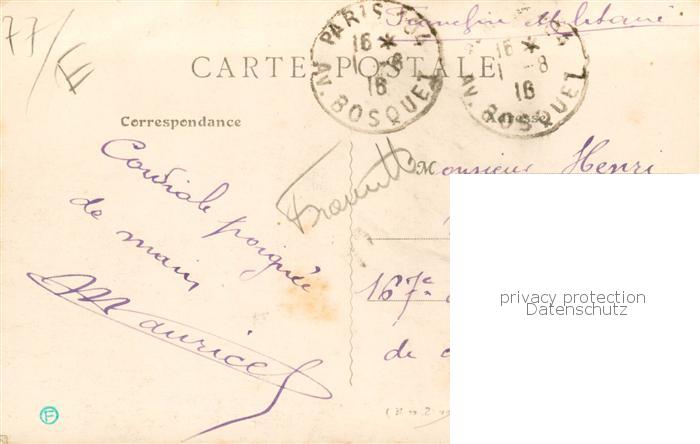 77/
Franchise Militaire
PARIS 104
16 *
1 - 8
16
AV. BOSQUET
16 *
1 - 8
16
AV. BOSQUET
CARTE POSTALE
Correspondance
Adresse
Cordiale poignée
de main
Maurice
Monsieur Henri
167e
de
privacy protection
Datenschutz
E